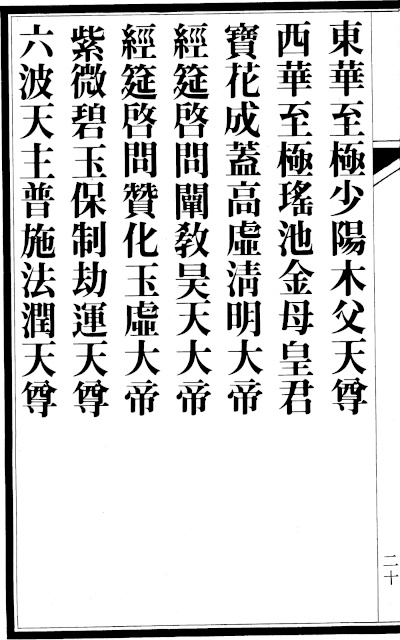 東華至極少陽木父天尊
西華至極瑤池金母皇君
寶花成蓋高虛淸明大帝
經筵啓問闡敎昊天大帝
經筵啓問贊化玉虛大帝
紫微碧玉保制劫運天尊
六波天主普施法潤天尊
二十